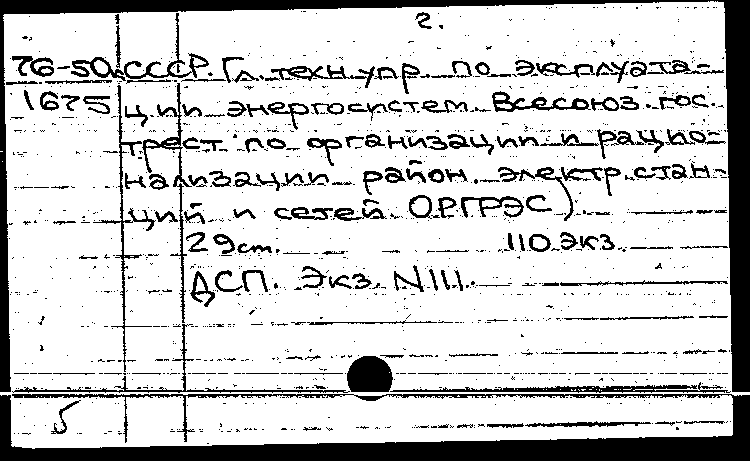 2.
76-50 СССР. Гл. техн. упр. по эксплуата-
1675 ции энергосистем. Всесоюз. гос.
трест по организации и рацио-
нализации район. электр. стан-
ций и сетей ОРГРЭС).
29 ст. 110 экз.
ДСП. Экз. N 111.
5